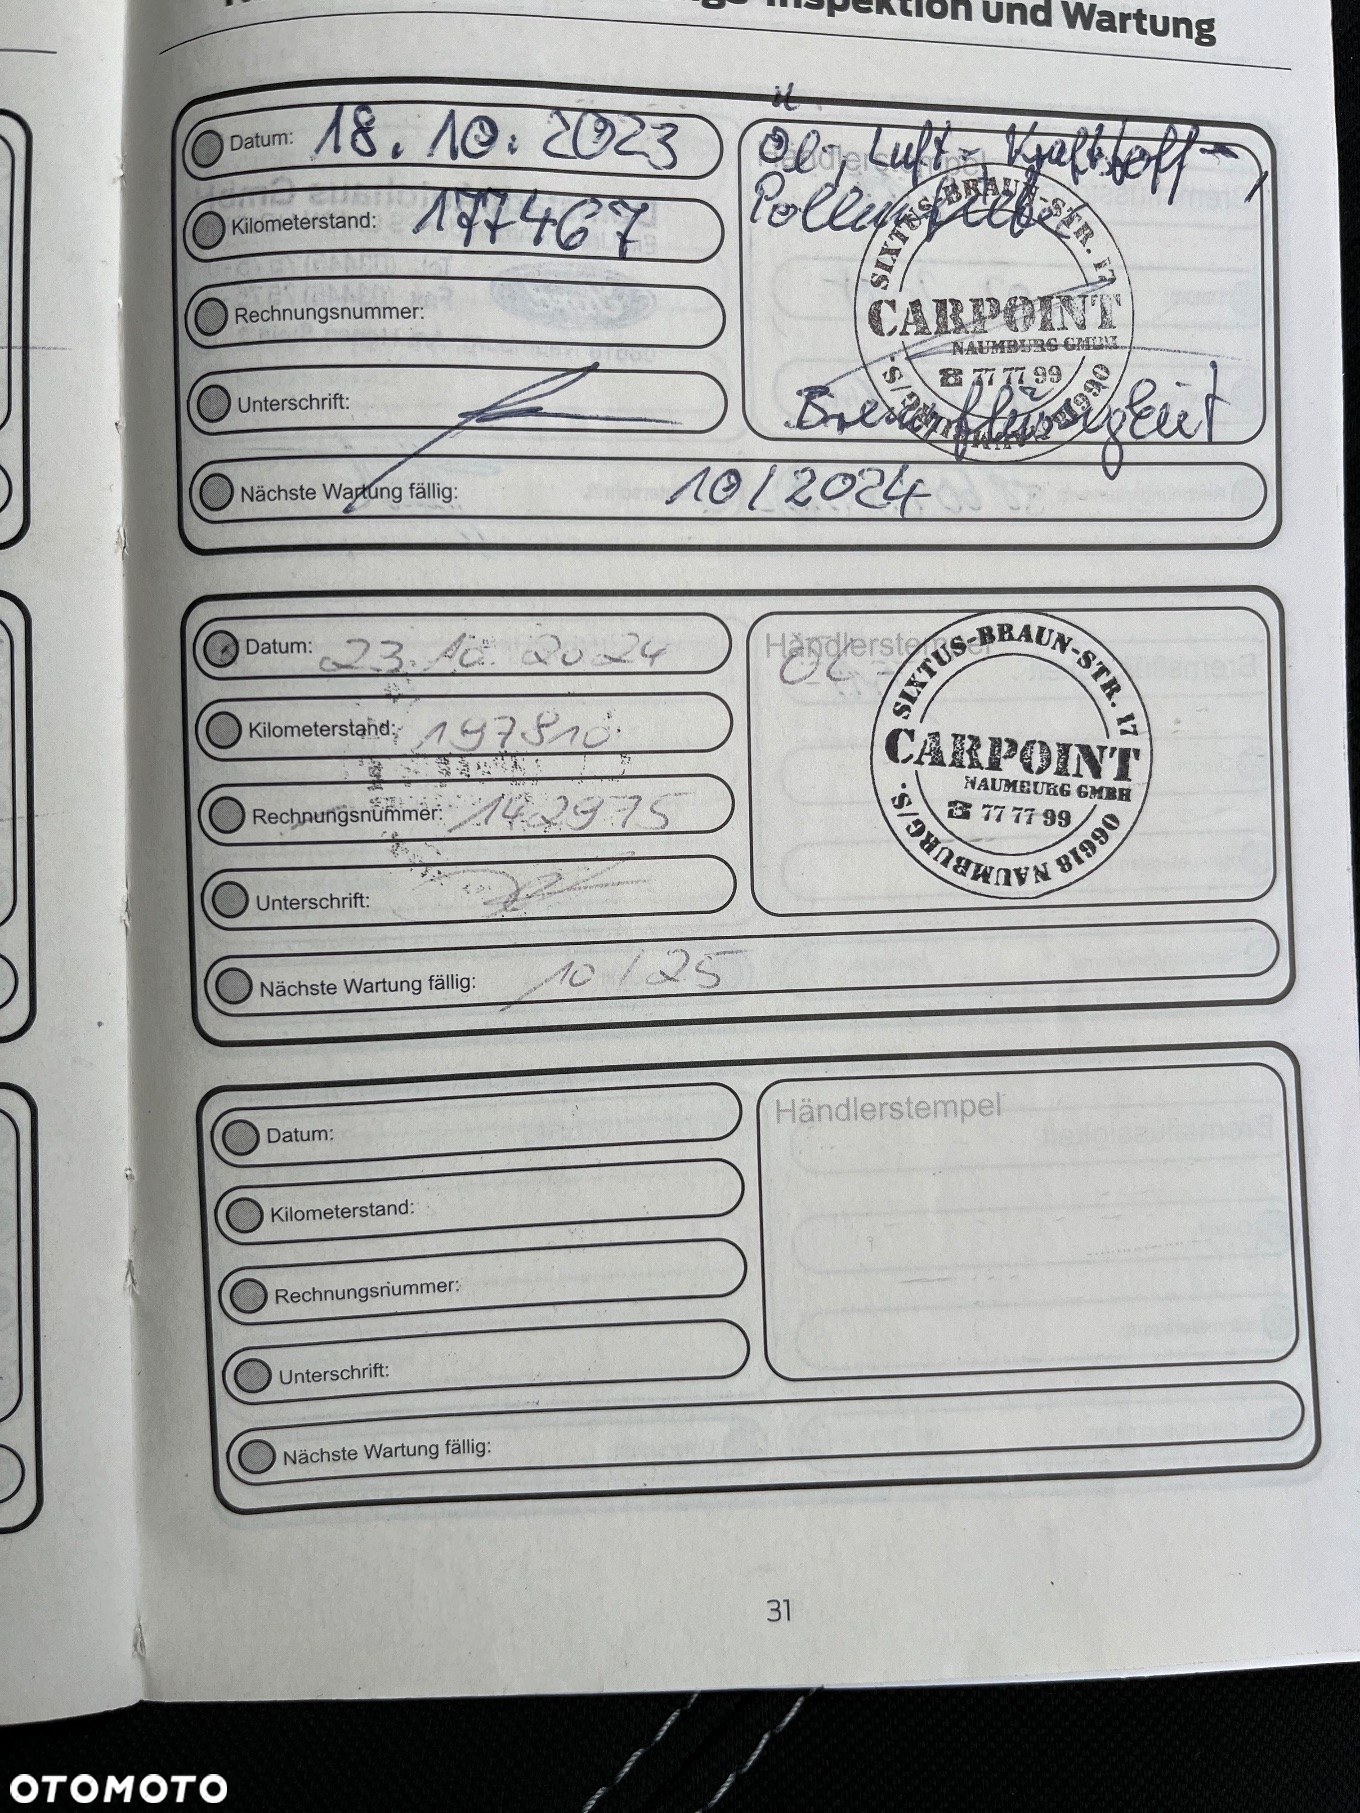 Inspektion und Wartung
Datum: 18.10.2023
Kilometerstand: 177467
Rechnungsnummer:
Unterschrift:
Nächste Wartung fällig: 10/2024
Händlerstempel
Öl-, Luft-, Kraftstoff-,
Pollenfilter
Bremsflüssigkeit
SIXTUS-BRAUN-STR. 17
CARPOINT
NAUMBURG GMBH
☎ 77 77 99
06618 NAUMBURG/S.
Datum: 23.10.2024
Kilometerstand: 197810
Rechnungsnummer: 142975
Unterschrift:
Nächste Wartung fällig: 10/25
Händlerstempel
SIXTUS-BRAUN-STR. 17
CARPOINT
NAUMBURG GMBH
☎ 77 77 99
06618 NAUMBURG/S.
Datum:
Kilometerstand:
Rechnungsnummer:
Unterschrift:
Nächste Wartung fällig:
Händlerstempel
31
OTOMOTO